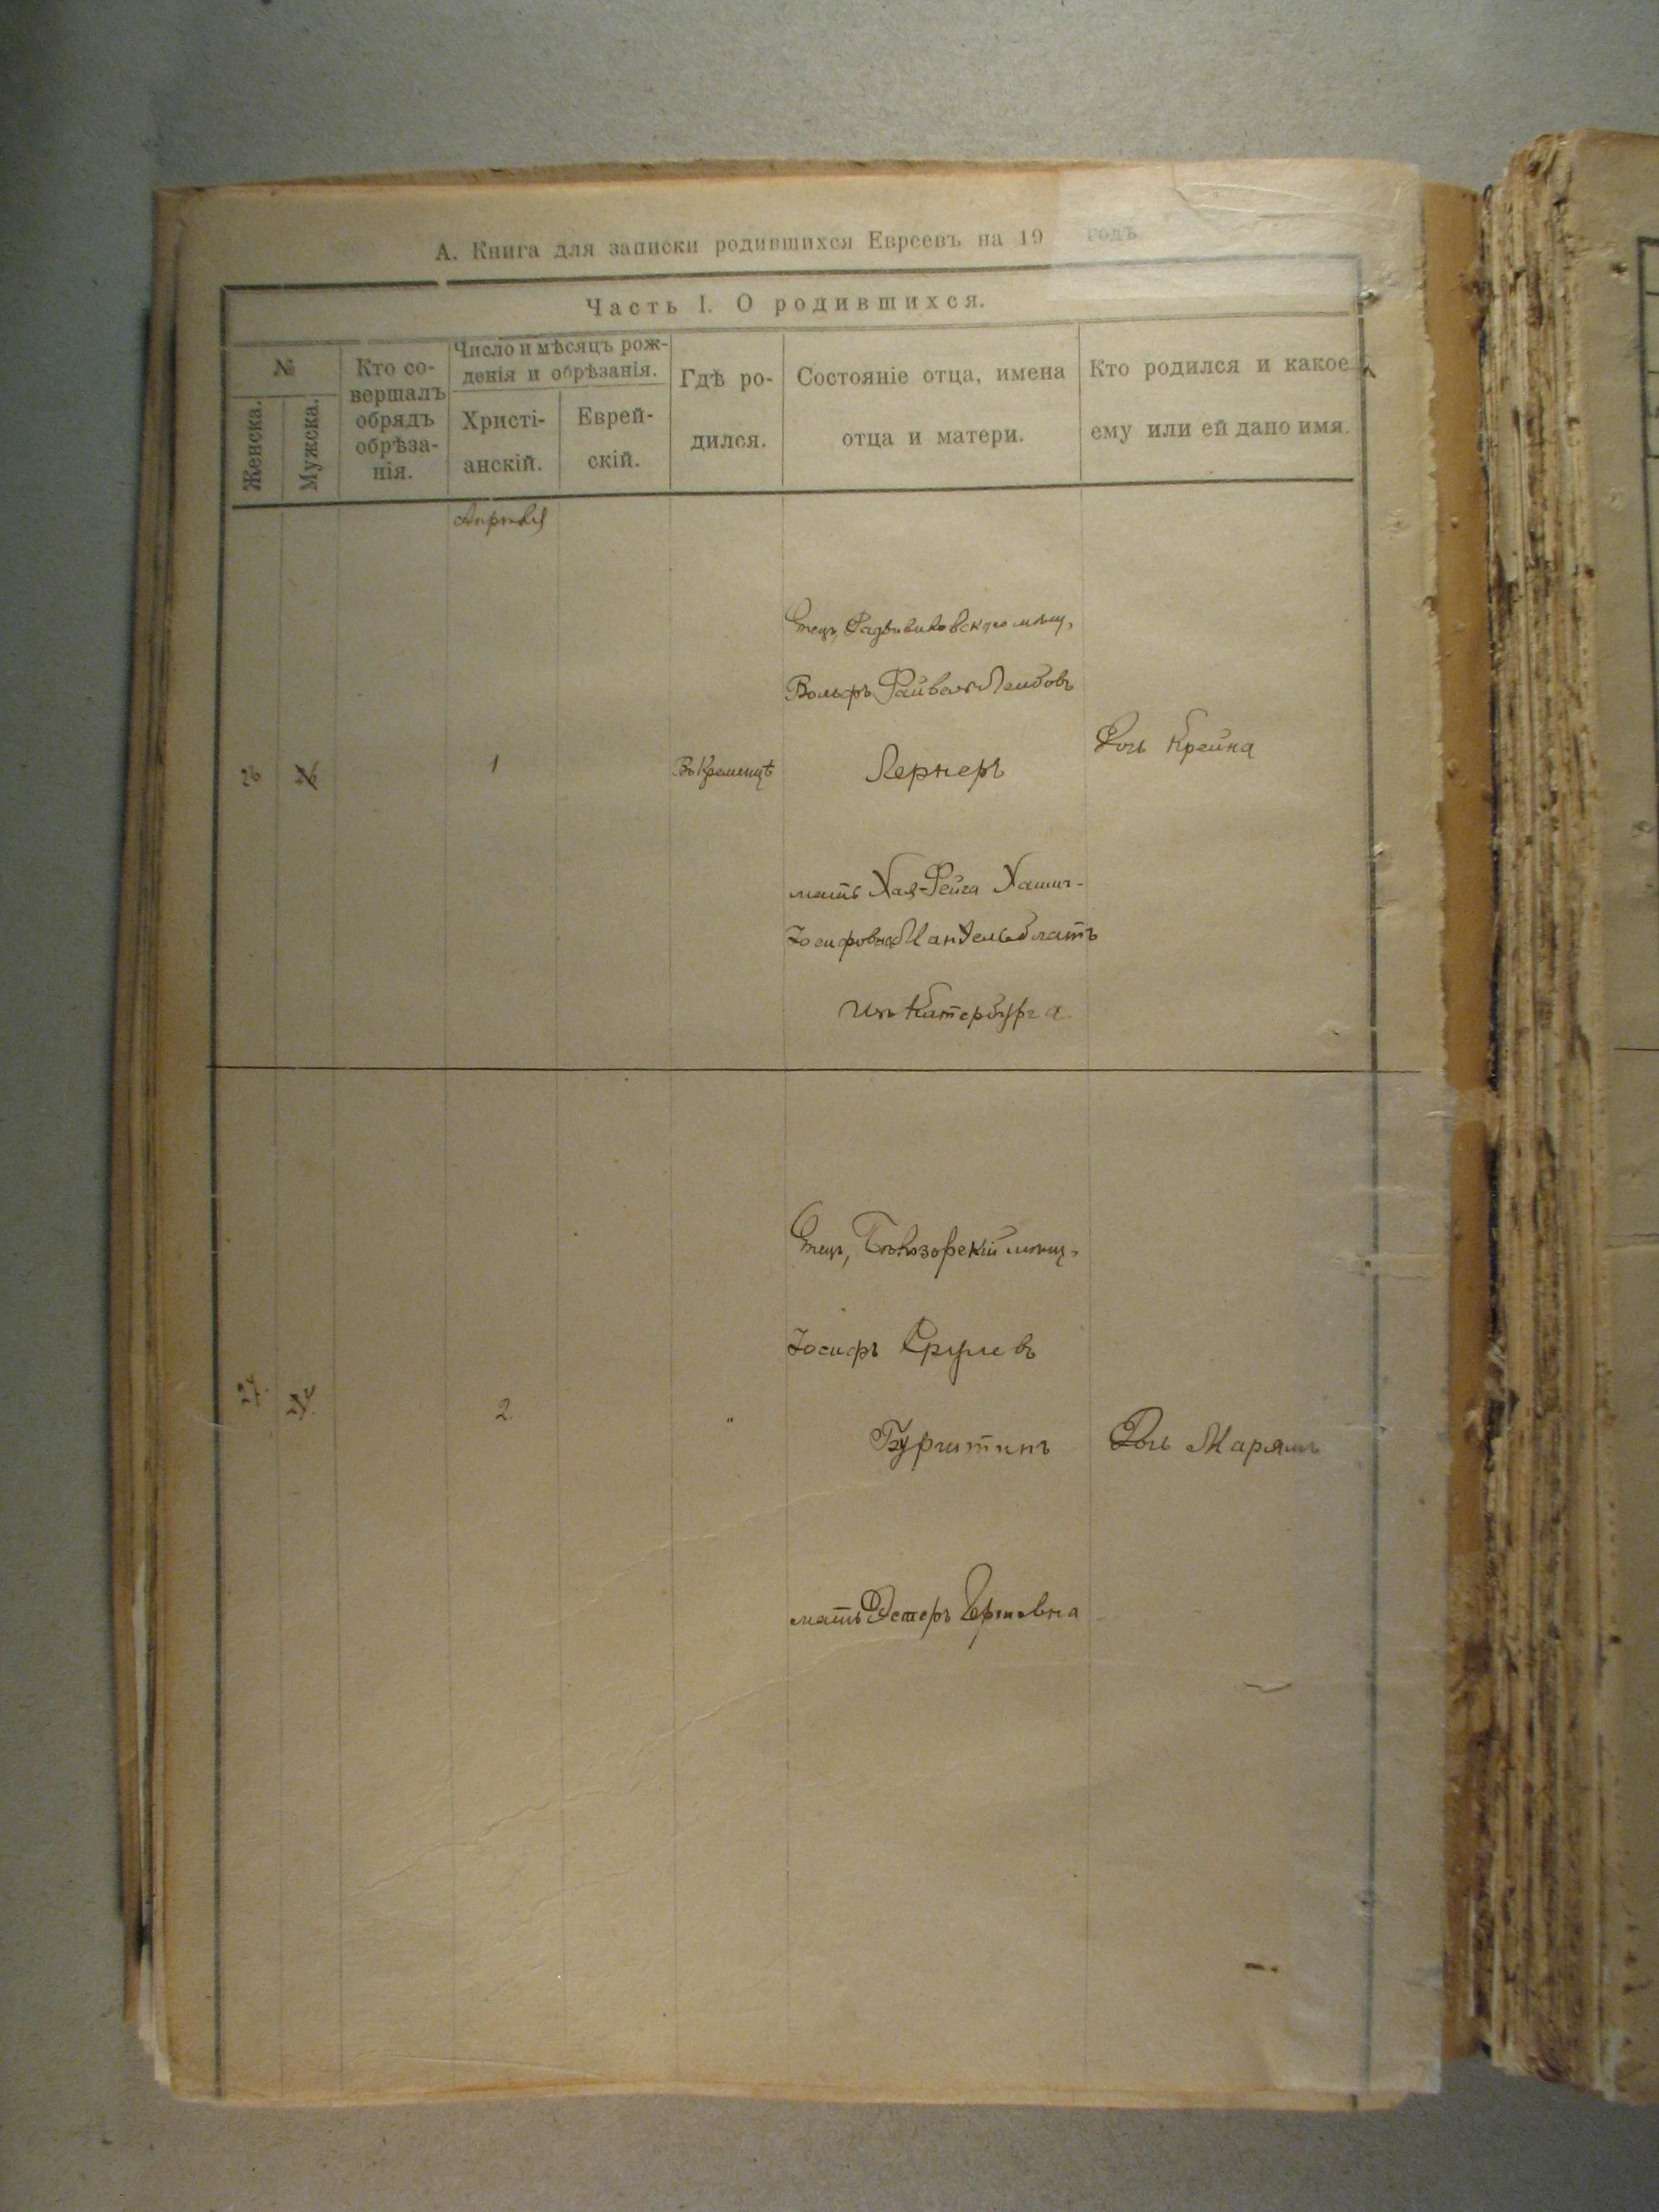 А. Книга для записки родившихся Евреевъ на 19 годъ
Часть I. О родившихся.
№
Женска.
Мужска.
Кто со-
вершалъ
обрядъ
обрѣза-
нія.
Число и мѣсяцъ рож-
денія и обрѣзанія.
Христі-
анскій.
Еврей-
скій.
Гдѣ ро-
дился.
Состояніе отца, имена
отца и матери.
Кто родился и какое
ему или ей дано имя.
Апрѣля
26
26
1
Въ Кременцѣ
Отецъ, мѣщ.
Вольфъ Файвель Лейбовъ
Лернеръ
мать Хая-Фейга Хаим-
Іосифовна Мандельблатъ
изъ Катербурга.
Дочь Крейна
27.
27.
2
"
Отецъ, Бѣлозорскій мѣщ.
Іосифъ Срулевъ
Бурштинъ
мать Эстеръ Гершовна
Дочь Марямъ